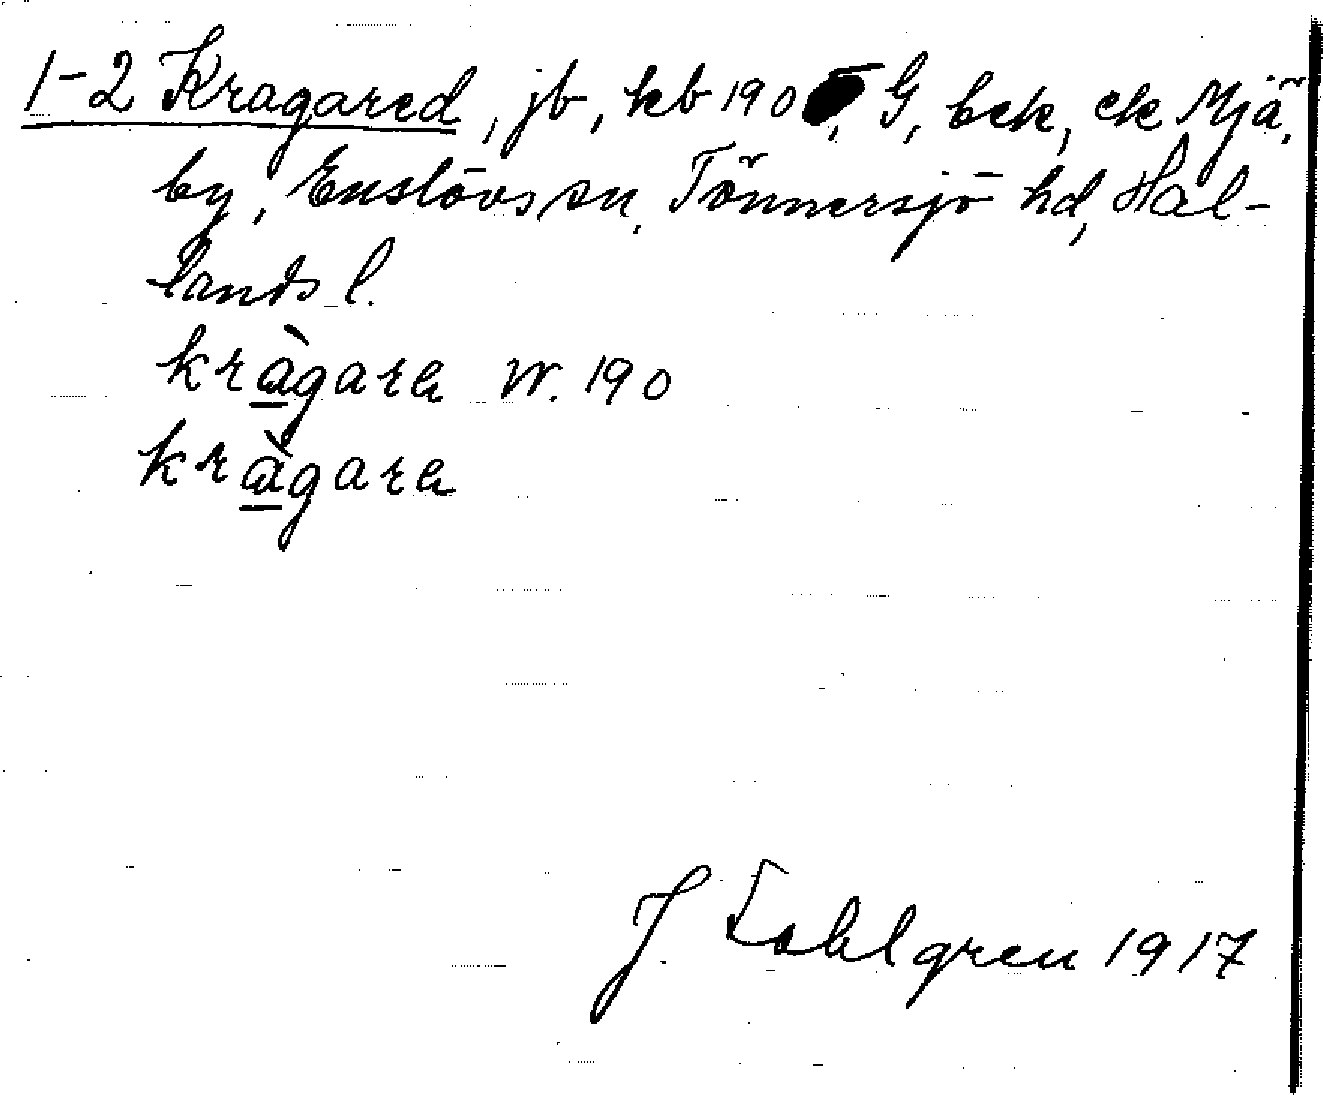 1-2 Kragared, jb, kb 190, G, bek, ek Mjä,
by, Enslövs sn, Tönnersjö hd, Hal-
lands l.
kràgara W. 190
kràgara
J. Sahlgren 1917